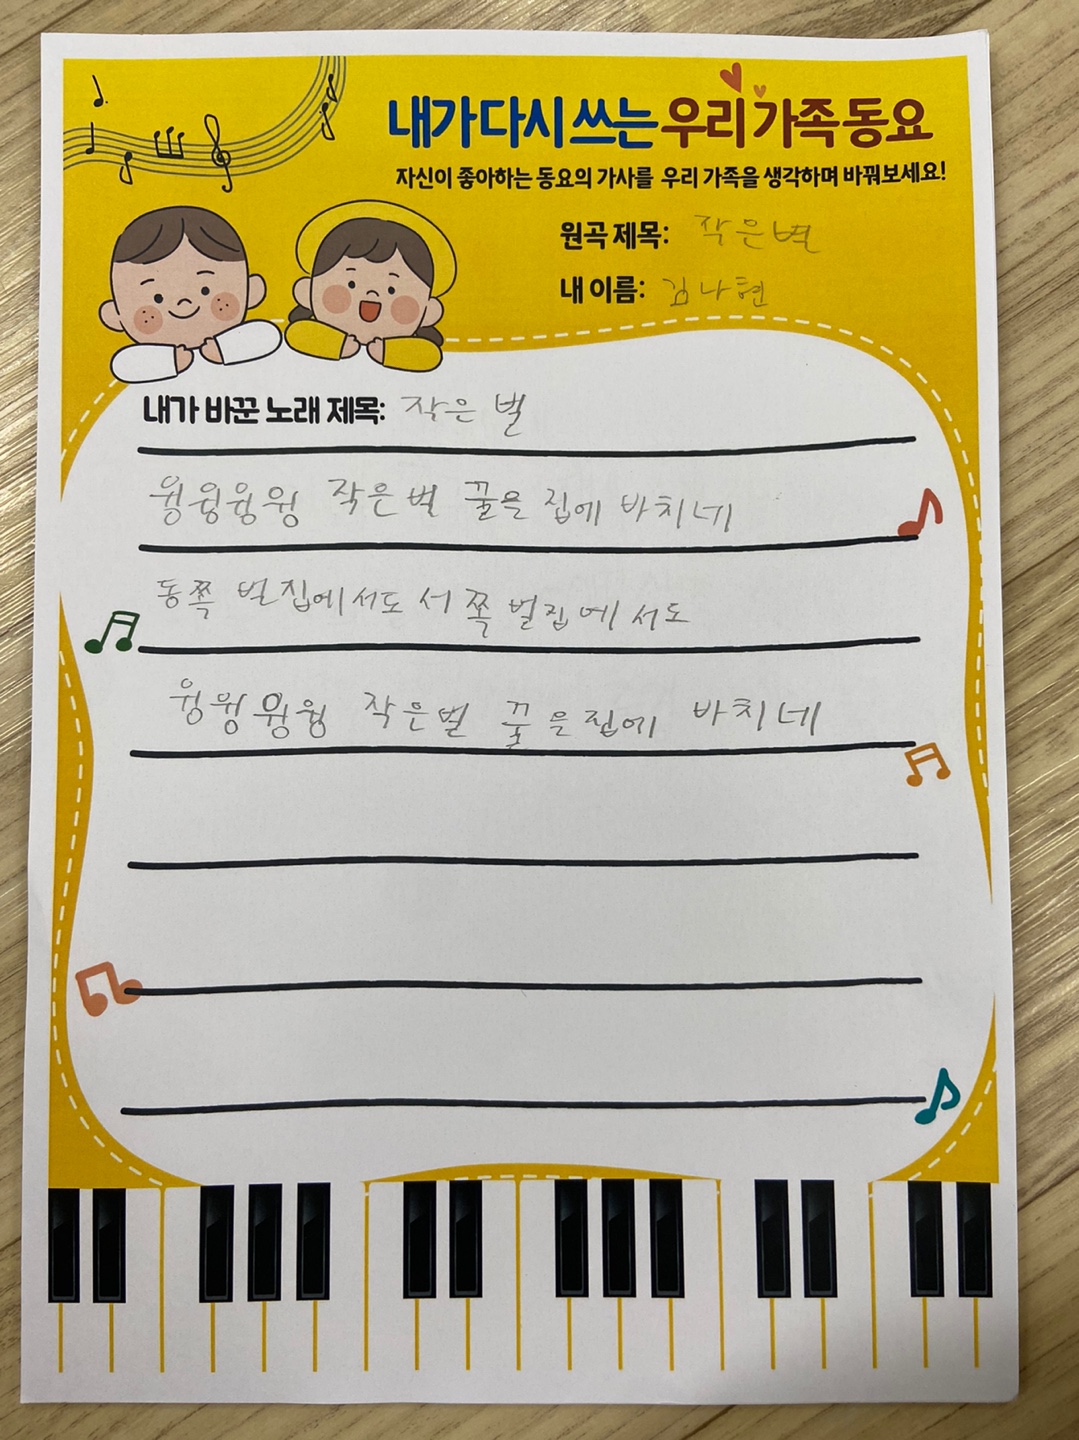 내가 다시 쓰는 우리 가족 동요
자신이 좋아하는 동요의 가사를 우리 가족을 생각하며 바꿔보세요!
원곡 제목: 작은별
내 이름: 김나현
내가 바꾼 노래 제목: 작은 벌
윙윙윙윙 작은벌 꿀을 집에 바치네
동쪽 벌집에서도 서쪽 벌집에서도
윙윙윙윙 작은벌 꿀을집에 바치네